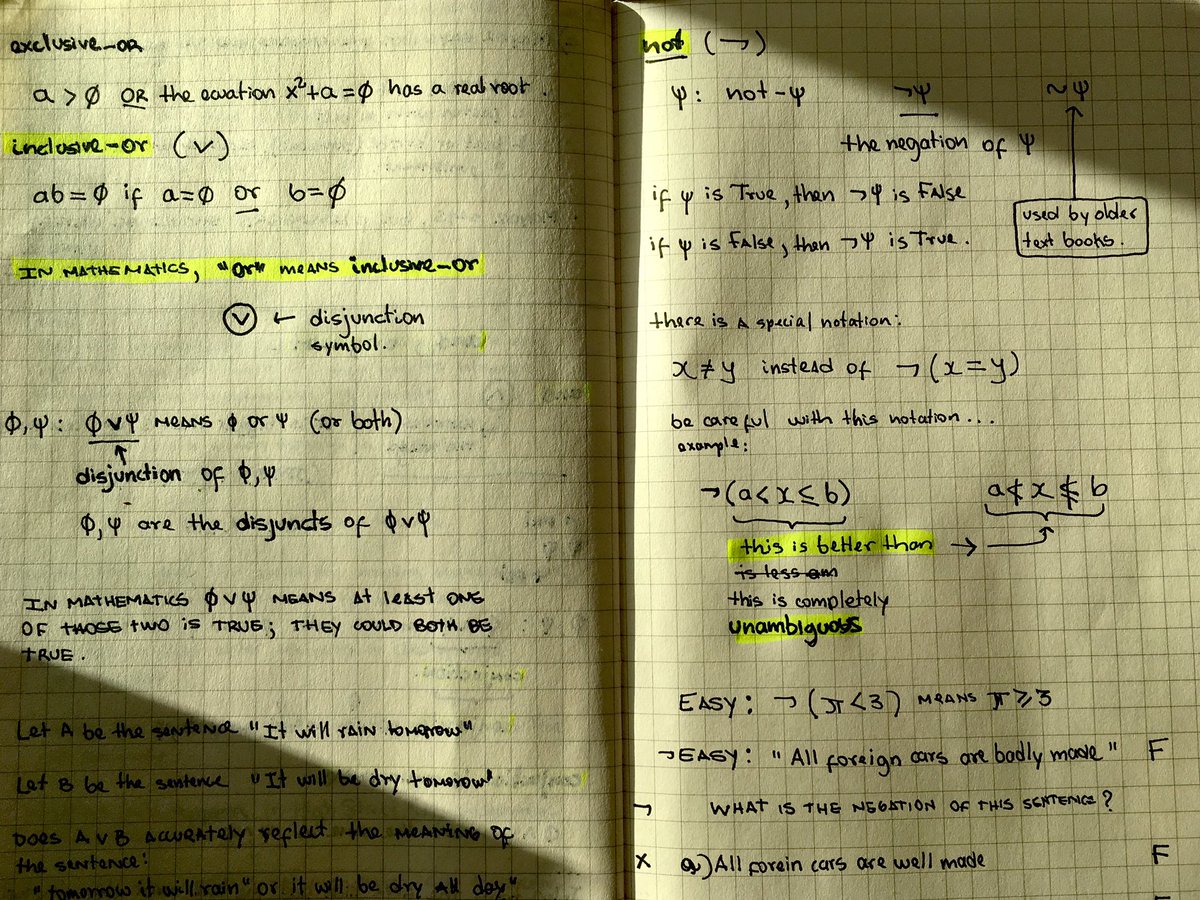 exclusive-OR
a > ϕ OR the equation x²+a=ϕ has a real root.
inclusive-or (∨)
ab=ϕ if a=ϕ or b=ϕ
IN MATHEMATICS, "or" MEANS inclusive-or
∨ ← disjunction
symbol.
ϕ,ψ: ϕ∨ψ MEANS ϕ or ψ (or both)
↑
disjunction of ϕ,ψ
ϕ,ψ are the disjuncts of ϕ∨ψ
IN MATHEMATICS ϕ∨ψ MEANS At least ONE
OF THOSE TWO is TRUE; THEY COULD BOTH BE
TRUE.
Let A be the sentence "It will RAIN tomorrow"
Let B be the sentence "It will be dry tomorow"
DOES A∨B ACCURATELY reflect the MEANING OF
the sentence:
"tomorrow it will rain" or it will be dry All day"
not (¬)
ψ: not-ψ ¬ψ ~ψ
the negation of ψ
if ψ is True, then ¬ψ is False
used by older
text books.
if ψ is False, then ¬ψ is True.
there is a special notation:
x≠y instead of ¬(x=y)
be careful with this notation...
example:
¬(a<x≤b) a≮x≰b
this is better than →
is less am
this is completely
unambiguous
EASY: ¬(π<3) MEANS π≥3
¬EASY: "All foreign cars are badly made" F
¬ WHAT IS THE NEGATION OF THIS SENTENCE?
X a) All forein cars are well made F